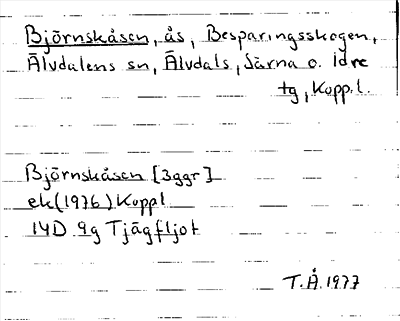 Björnskåsen, ås, Besparingsskogen,
Älvdalens sn, Älvdals, Särna o. Idre
tg, Kopp.l.
Björnskåsen [3ggr]
ek(1976) Koppl
14D 9g Tjägfljot
T.Å.1977